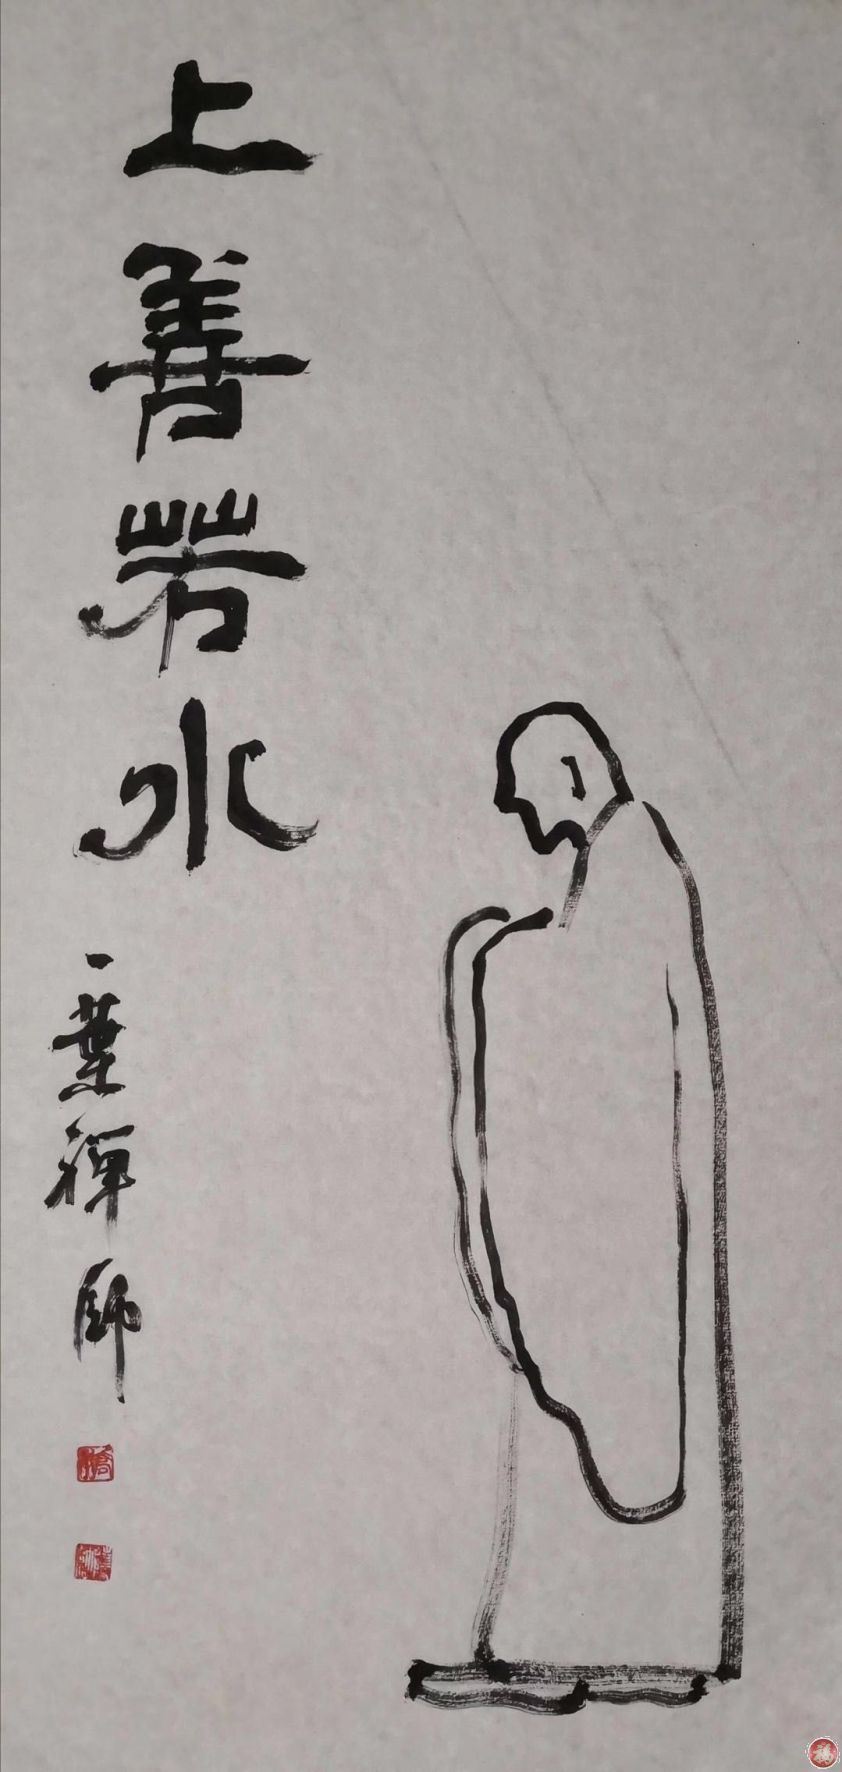 上善若水
一葉禪師